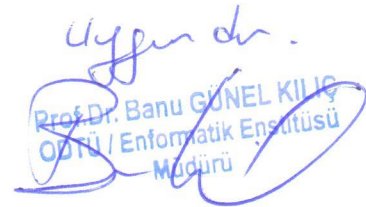 Uygundur.
Prof.Dr. Banu GÜNEL KILIÇ
ODTÜ / Enformatik Enstitüsü
Müdürü